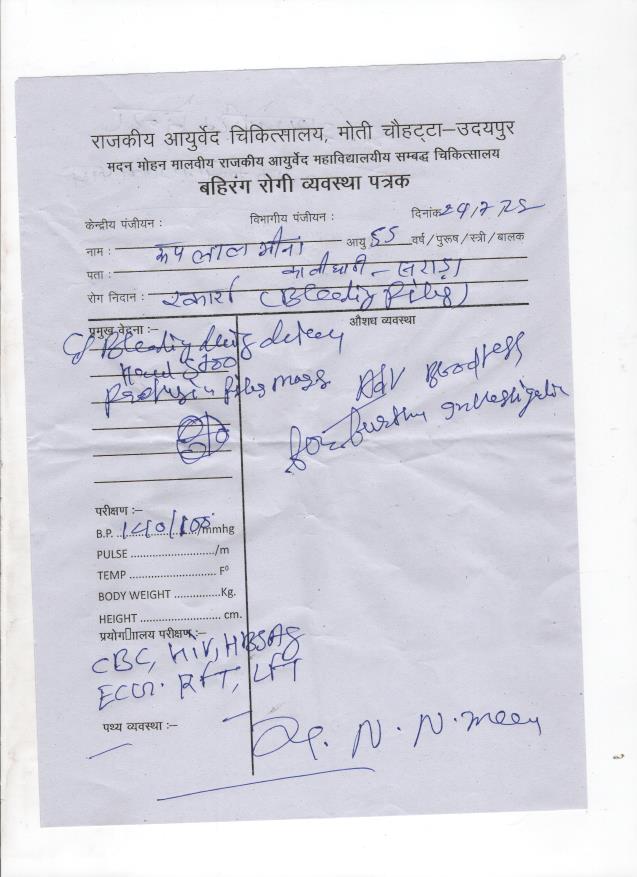 राजकीय आयुर्वेद चिकित्सालय, मोती चौहट्टा–उदयपुर
मदन मोहन मालवीय राजकीय आयुर्वेद महाविद्यालयीय सम्बद्ध चिकित्सालय
बहिरंग रोगी व्यवस्था पत्रक
केन्द्रीय पंजीयन : विभागीय पंजीयन : दिनांक
नाम : लाल मीना आयु 55 वर्ष/पुरूष/स्त्री/बालक
पता :
रोग निदान : (Bleeding Piles)
प्रमुख वेदना :– औशध व्यवस्था
Bleeding
Hard Stool
piles mass Adv
for further investigation
परीक्षण :–
B.P. 140/100 /mmhg
PULSE ........................../m
TEMP ........................... F⁰
BODY WEIGHT ..............Kg.
HEIGHT ......................... cm.
प्रयोग ालय परीक्षण :–
CBC, HIV, HBSAg
ECG. RFT, LFT
पथ्य व्यवस्था :–